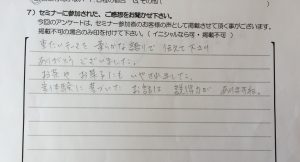 7）セミナーご参加された、ご感想をお聞かせ下さい。
今回のアンケートは、セミナー参加者のお客様の声として掲載させて頂く事がございます。
掲載不可の場合のみ印を付けて下さい。（ イニシャルなら可・掲載不可 ）
重たいテーマを 柔らかな語り で 伝えて下さり
ありがとう ございました。
お茶や お菓子にも いやされました。
実体験に 基づいた お話は 説得力が ありますね。